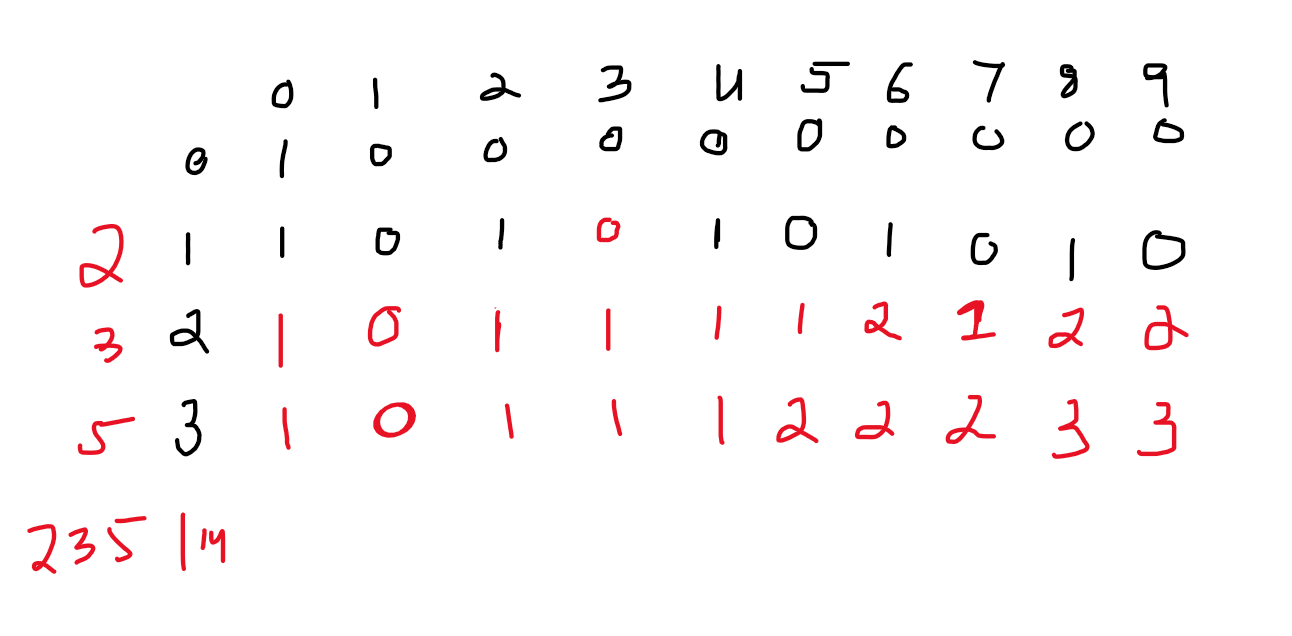 0 1 2 3 4 5 6 7 8 9
0 1 0 0 0 0 0 0 0 0 0
2 1 1 0 1 0 1 0 1 0 1 0
3 2 1 0 1 1 1 1 2 1 2 2
5 3 1 0 1 1 1 2 2 2 3 3
2 3 5 | 14